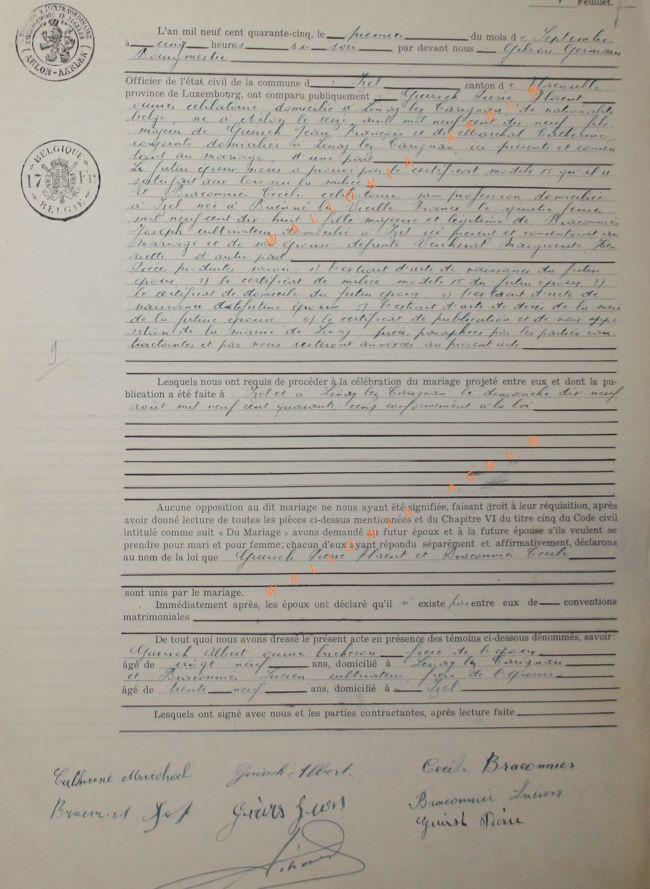 Feuillet.
L'an mil neuf cent quarante-cinq, le premier du mois de Septembre
à cinq heures du soir par devant nous Gilson Germain
Bourgmestre
Officier de l'état civil de la commune d'Izel canton de Florenville
province de Luxembourg, ont comparu publiquement: Guirsch Pierre Florent
ouvrier célibataire domicilié à Linay lez Carignan de nationalité
belge, né à le seize août mil neuf cent dix neuf, fils
majeur de Guirsch Jean François et de Maréchal Catherine,
conjoints domiciliés à Linay lez Carignan, ici présents et consen
tant au mariage, d'une part
Le futur époux nous a prouvé par le certificat modèle 15 qu'il a
satisfait aux lois sur la milice
Et Braconnier Cécile célibataire sans profession domiciliée
à Izel née à la Vieille France le quatre
mil neuf cent dix huit fille majeure et légitime de Braconnier
Joseph cultivateur domicilié à Izel ici présent et consentant au
mariage et de son épouse, défunte Marguerite Hen
riette d'autre part
Pièces produites savoir: 1) l'extrait d'acte de naissance du futur
époux 2) le certificat de milice modèle 15 du futur époux 3)
le certificat de domicile du futur époux 4) l'extrait d'acte de
naissance de la future épouse 5) l'extrait d'acte de décès de la mère
de la future épouse 6) le certificat de publication et de non oppo
sition de la mairie de Linay pièces paraphées par les parties con
tractantes et par nous resteront annexées au présent acte
9
Lesquels nous ont requis de procéder à la célébration du mariage projeté entre eux et dont la pu-
blication a été faite à Izel et à Linay lez Carignan le dimanche dix neuf
août mil neuf cent quarante cinq conformément à la loi
Aucune opposition au dit mariage ne nous ayant été signifiée, faisant droit à leur réquisition, après
avoir donné lecture de toutes les pièces ci-dessus mentionnées et du Chapitre VI du titre cinq du Code civil
intitulé comme suit « Du Mariage » avons demandé au futur époux et à la future épouse s'ils veulent se
prendre pour mari et pour femme; chacun d'eux ayant répondu séparément et affirmativement, déclarons
au nom de la loi que Guirsch Pierre Florent et Braconnier Cécile
sont unis par le mariage.
Immédiatement après, les époux ont déclaré qu'il n'existe pas entre eux de conventions
matrimoniales
De tout quoi nous avons dressé le présent acte en présence des témoins ci-dessous dénommés, savoir:
Guirsch Albert ouvrier bucheron frère de l'époux
âgé de vingt neuf ans, domicilié à Linay lez Carignan
et Braconnier Lucien cultivateur, frère de l'épouse
âgé de trente neuf ans, domicilié à Izel
Lesquels ont signé avec nous et les parties contractantes, après lecture faite
Catherine Marechal Guirsch Albert. Cécile Braconnier
Braconnier Lucien
Guirsch Pierre
BELGIQUE
BELGIE
ARLON-AARLEN
WALLONIA ASBL ©
WALLONIA ASBL ©